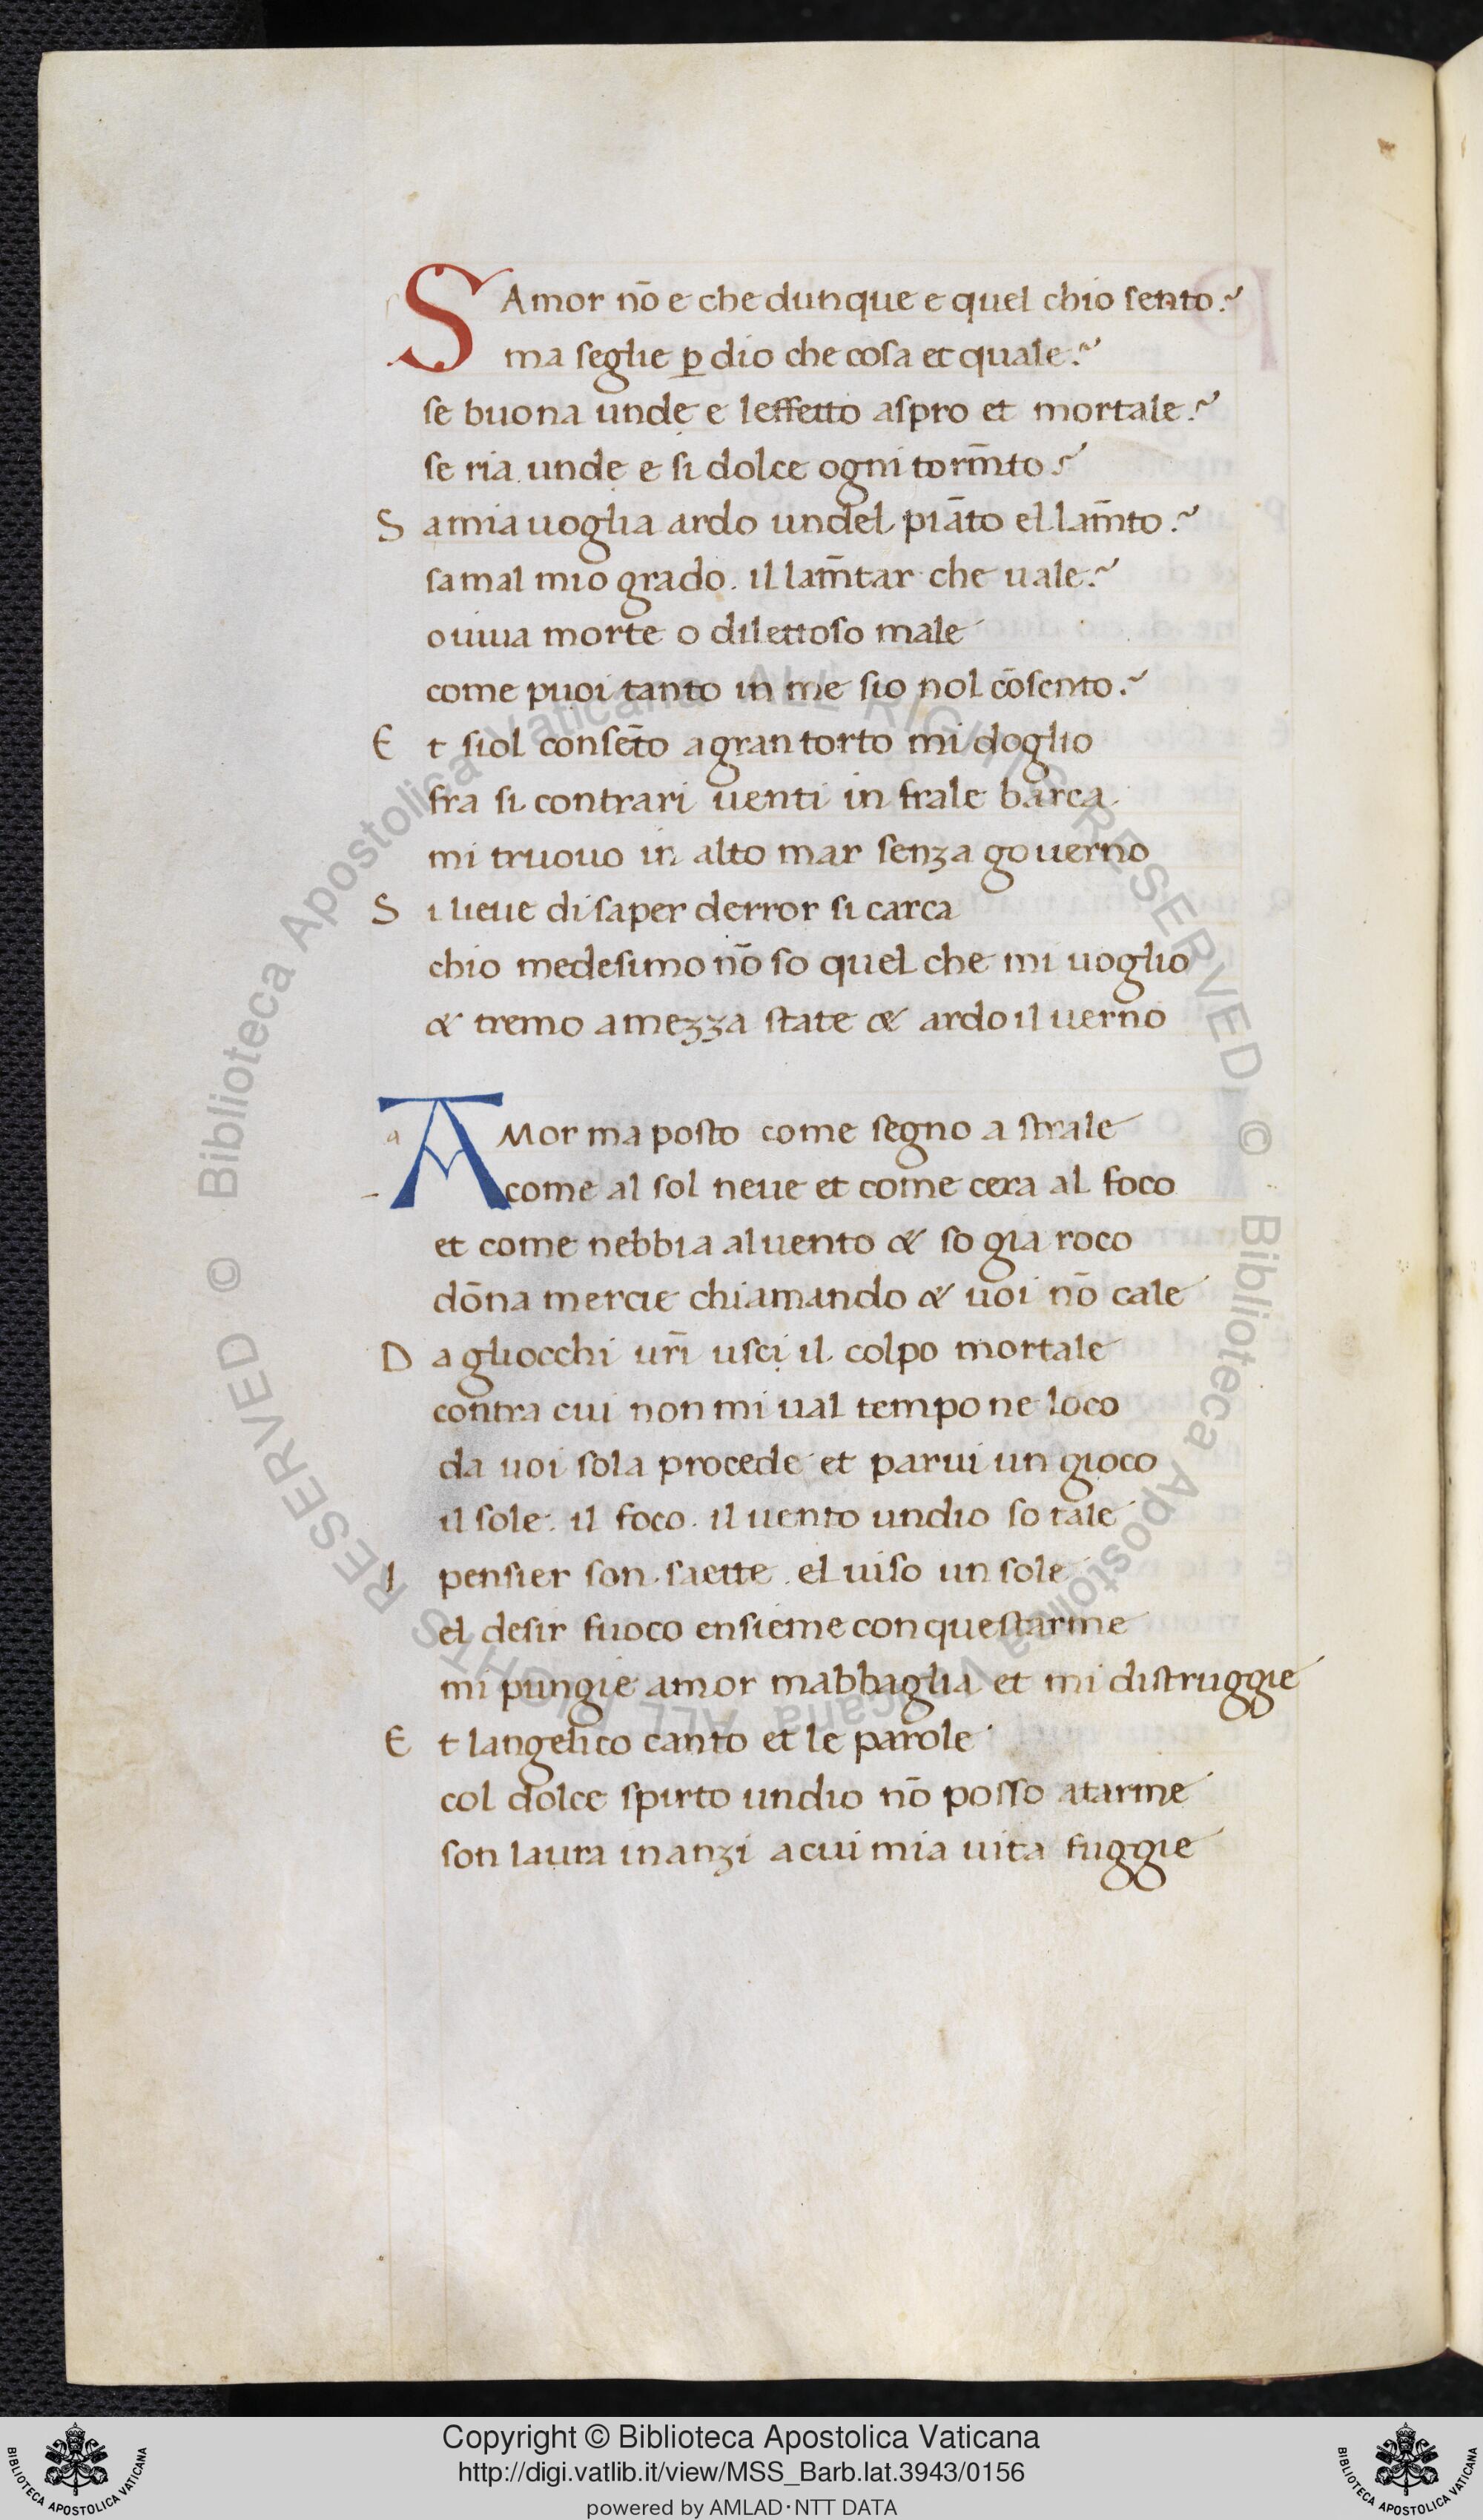 SAmor nō e che dunque e quel chio sento?
ma seglie ꝑ dio che cosa et quale?
se buona unde e leffetto aspro et mortale?
se ria unde e si dolce ogni torm̄to?
S amia uoglia ardo undel piāto el lam̄to?
samal mio grado. il lam̄tar che uale?
o uiua morte o dilettoso male
come puoi tanto in me sio nol cōsento?
E t siol consēto a gran torto mi doglio
fra si contrari uenti in frale barca
mi truouo in alto mar senza gouerno
S i lieue di saper derror si carca
chio medesimo nō so quel che mi uoglio
& tremo a mezza state & ardo il uerno
AMor ma posto come segno a strale
come al sol neue et come cera al foco
et come nebbia al uento & so gia roco
dōna mercie chiamando & uoi nō cale
D a gliocchi ur̄i usci il colpo mortale
contra cui non mi ual tempo ne loco
da uoi sola procede et parui un gioco
il sole. il foco. il uento undio so tale
I pensier son saette. el uiso un sole
el desir fuoco ensieme con questarme
mi pungie amor mabbaglia et mi distruggie
E t langelico canto et le parole
col dolce spirto undio nō posso atarme
son laura inanzi a cui mia uita fuggie
© Biblioteca Apostolica Vaticana ALL RIGHTS RESERVED © Biblioteca Apostolica Vaticana ALL RIGHTS RESERVED
Copyright © Biblioteca Apostolica Vaticana
http://digi.vatlib.it/view/MSS_Barb.lat.3943/0156
powered by AMLAD·NTT DATA
BIBLIOTECA APOSTOLICA VATICANA
BIBLIOTECA APOSTOLICA VATICANA